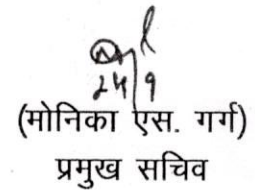 24/9
(मोनिका एस. गर्ग)
प्रमुख सचिव